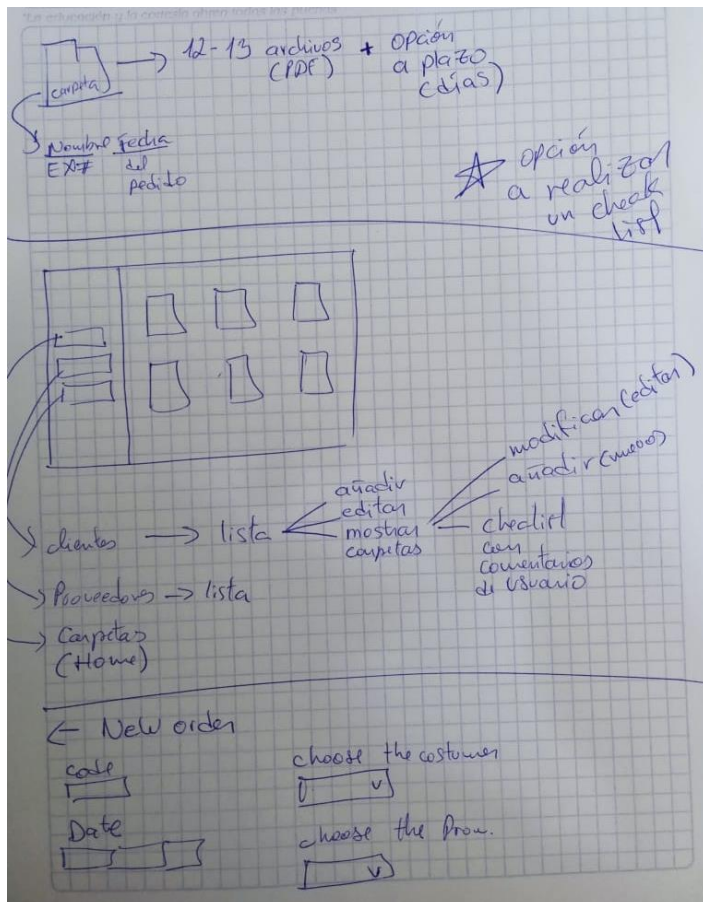 "La educación y la
carpeta
12-13 archivos
(PDF)
+ opción
a plazo
(días)
Nombre Fecha
EX# del
pedido
opción
a realizar
un check
list
clientes → lista
añadir
editar
mostrar
carpetas
modifican (editar)
añadir (nuevo)
con
comentarios
de usuario
Proveedores → lista
Carpetas
(Home)
← New order
code
choose the costumer
Date
choose the Prov.